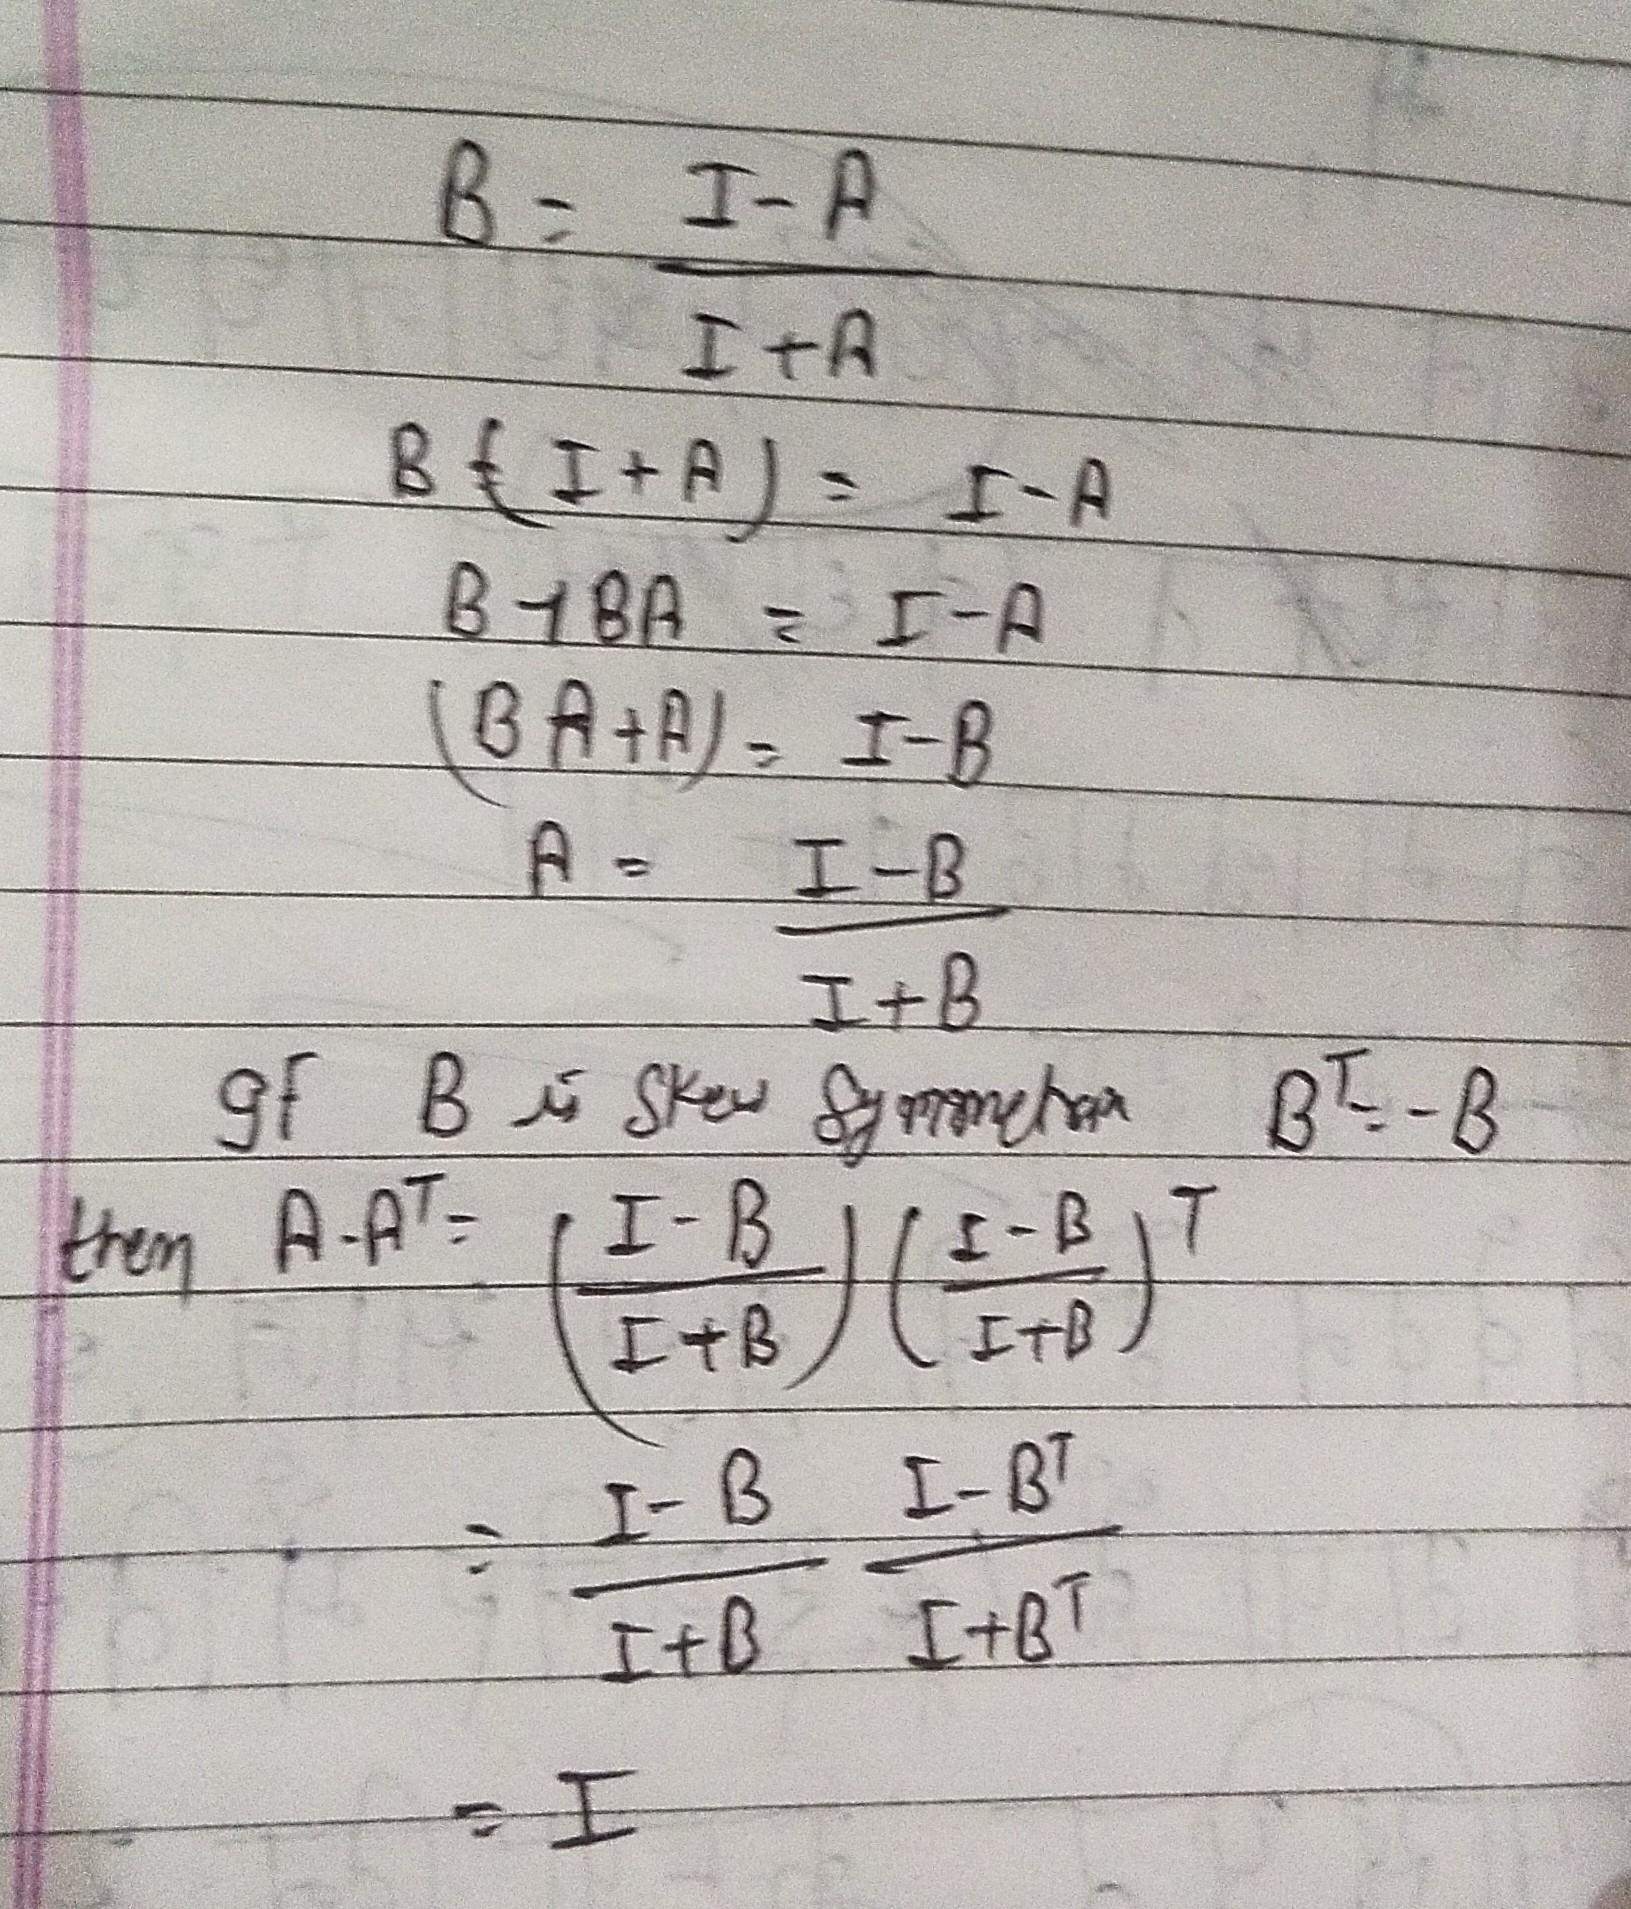 B = I - A
I + A
B ( I + A ) = I - A
B + BA = I - A
( BA + A ) = I - B
A = I - B
I + B
gf B is Skew Symmetric Bᵀ = - B
then A - Aᵀ = ( I - B / I + B ) ( I - B / I + B )ᵀ
= I - B I - Bᵀ
I + B I + Bᵀ
= I